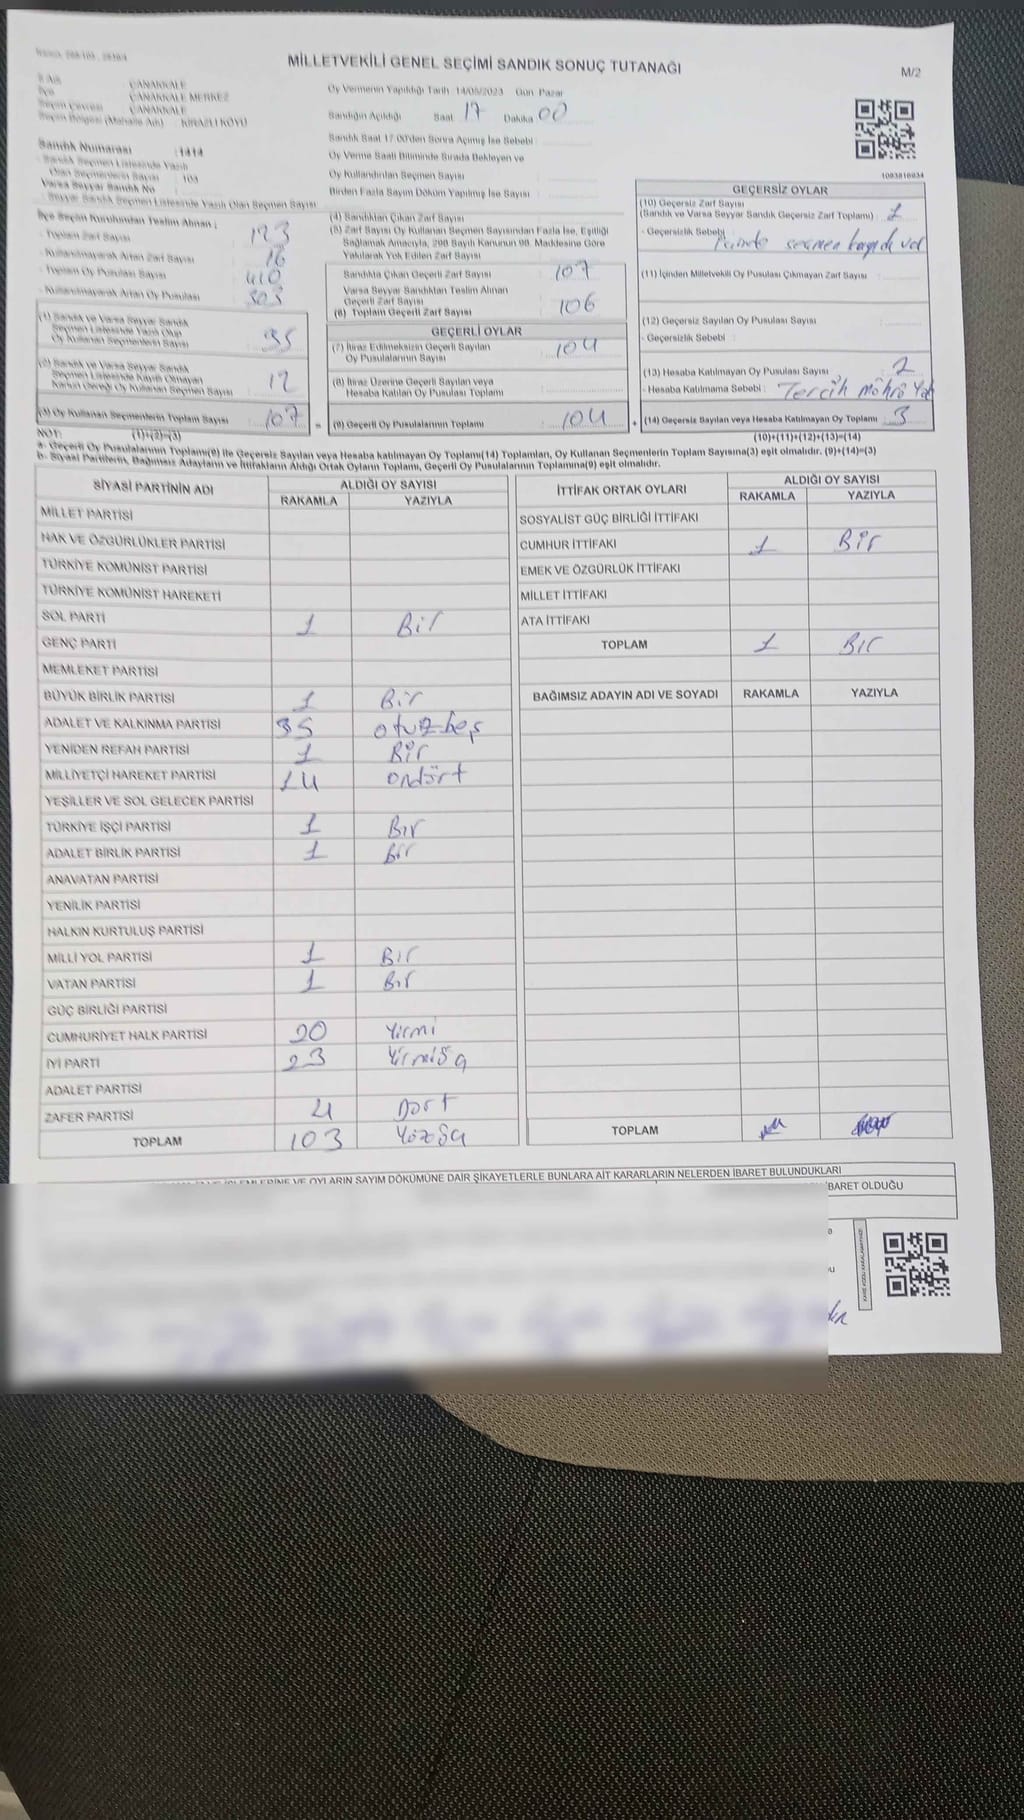 MİLLETVEKİLİ GENEL SEÇİMİ SANDIK SONUÇ TUTANAĞI
M/2
ÇANAKKALE
ÇANAKKALE MERKEZ
ÇANAKKALE
Seçim Bölgesi (Mahalle Adı) : KİRAZLI KÖYÜ
Sandık Numarası : 1414
Sandık Seçmen Listesinde Yazılı
Olan Seçmenlerin Sayısı : 103
Varsa Seyyar Sandık No
Seyyar Sandık Seçmen Listesinde Yazılı Olan Seçmen Sayısı
Oy Vermenin Yapıldığı Tarih 14/05/2023 Gün Pazar
Sandığın Açıldığı Saat 17 Dakika 00
Sandık Saat 17.00'den Sonra Açılmış İse Sebebi :
Oy Verme Saati Bitiminde Sırada Bekleyen ve
Oy Kullandırılan Seçmen Sayısı
Birden Fazla Sayım Döküm Yapılmış İse Sayısı
İlçe Seçim Kurulundan Teslim Alınan ;
- Toplam Zarf Sayısı 123
- Kullanılmayarak Artan Zarf Sayısı 16
- Toplam Oy Pusulası Sayısı 410
- Kullanılmayarak Artan Oy Pusulası 303
(1) Sandık ve Varsa Seyyar Sandık
Seçmen Listesinde Yazılı Olup
Oy Kullanan Seçmenlerin Sayısı
(2) Sandık ve Varsa Seyyar Sandık
Seçmen Listesinde Kayıtlı Olmayan
Kanun Gereği Oy Kullanan Seçmen Sayısı 12
(3) Oy Kullanan Seçmenlerin Toplam Sayısı 107
(1)+(2)=(3)
(4) Sandıktan Çıkan Zarf Sayısı
(5) Zarf Sayısı Oy Kullanan Seçmen Sayısından Fazla İse, Eşitliği
Sağlamak Amacıyla, 298 Sayılı Kanunun 98. Maddesine Göre
Yakılarak Yok Edilen Zarf Sayısı
Sandıkta Çıkan Geçerli Zarf Sayısı 107
Varsa Seyyar Sandıktan Teslim Alınan
Geçerli Zarf Sayısı
(6) Toplam Geçerli Zarf Sayısı 106
GEÇERLİ OYLAR
(7) İtiraz Edilmeksizin Geçerli Sayılan
Oy Pusulalarının Sayısı 104
(8) İtiraz Üzerine Geçerli Sayılan veya
Hesaba Katılan Oy Pusulası Toplamı
= (9) Geçerli Oy Pusulalarının Toplamı 104
1083816934
GEÇERSİZ OYLAR
(10) Geçersiz Zarf Sayısı
(Sandık ve Varsa Seyyar Sandık Geçersiz Zarf Toplamı) : 1
- Geçersizlik Sebebi
(11) İçinden Milletvekili Oy Pusulası Çıkmayan Zarf Sayısı
(12) Geçersiz Sayılan Oy Pusulası Sayısı
- Geçersizlik Sebebi :
(13) Hesaba Katılmayan Oy Pusulası Sayısı 2
- Hesaba Katılmama Sebebi : Tercih möhrö Yok
+ (14) Geçersiz Sayılan veya Hesaba Katılmayan Oy Toplamı 3
(10)+(11)+(12)+(13)=(14)
NOT:
a- Geçerli Oy Pusulalarının Toplamı(9) ile Geçersiz Sayılan veya Hesaba katılmayan Oy Toplamı(14) Toplamları, Oy Kullanan Seçmenlerin Toplam Sayısına(3) eşit olmalıdır. (9)+(14)=(3)
b- Siyasi Partilerin, Bağımsız Adayların ve İttifakların Aldığı Ortak Oyların Toplamı, Geçerli Oy Pusulalarının Toplamına(9) eşit olmalıdır.
SİYASİ PARTİNİN ADI ALDIĞI OY SAYISI
RAKAMLA YAZIYLA
MİLLET PARTİSİ
HAK VE ÖZGÜRLÜKLER PARTİSİ
TÜRKİYE KOMÜNİST PARTİSİ
TÜRKİYE KOMÜNİST HAREKETİ
SOL PARTİ 1 Bir
GENÇ PARTİ
MEMLEKET PARTİSİ
BÜYÜK BİRLİK PARTİSİ 1 Bir
ADALET VE KALKINMA PARTİSİ 35 otuzbeş
YENİDEN REFAH PARTİSİ 1 Bir
MİLLİYETÇİ HAREKET PARTİSİ 14 ondört
YEŞİLLER VE SOL GELECEK PARTİSİ
TÜRKİYE İŞÇİ PARTİSİ 1 Bır
ADALET BİRLİK PARTİSİ 1 Bir
ANAVATAN PARTİSİ
YENİLİK PARTİSİ
HALKIN KURTULUŞ PARTİSİ
MİLLİ YOL PARTİSİ 1 Bır
VATAN PARTİSİ 1 Bır
GÜÇ BİRLİĞİ PARTİSİ
CUMHURİYET HALK PARTİSİ 20 Yirmi
İYİ PARTİ 23 Yirmiöç
ADALET PARTİSİ
ZAFER PARTİSİ 4 Dört
TOPLAM 103 Yözöç
İTTİFAK ORTAK OYLARI ALDIĞI OY SAYISI
RAKAMLA YAZIYLA
SOSYALİST GÜÇ BİRLİĞİ İTTİFAKI
CUMHUR İTTİFAKI 1 Bir
EMEK VE ÖZGÜRLÜK İTTİFAKI
MİLLET İTTİFAKI
ATA İTTİFAKI
TOPLAM 1 Bır
BAĞIMSIZ ADAYIN ADI VE SOYADI RAKAMLA YAZIYLA
TOPLAM
OYLARIN SAYIM DÖKÜMÜNE DAİR ŞİKAYETLERLE BUNLARA AİT KARARLARIN NELERDEN İBARET BULUNDUKLARI
İBARET OLDUĞU